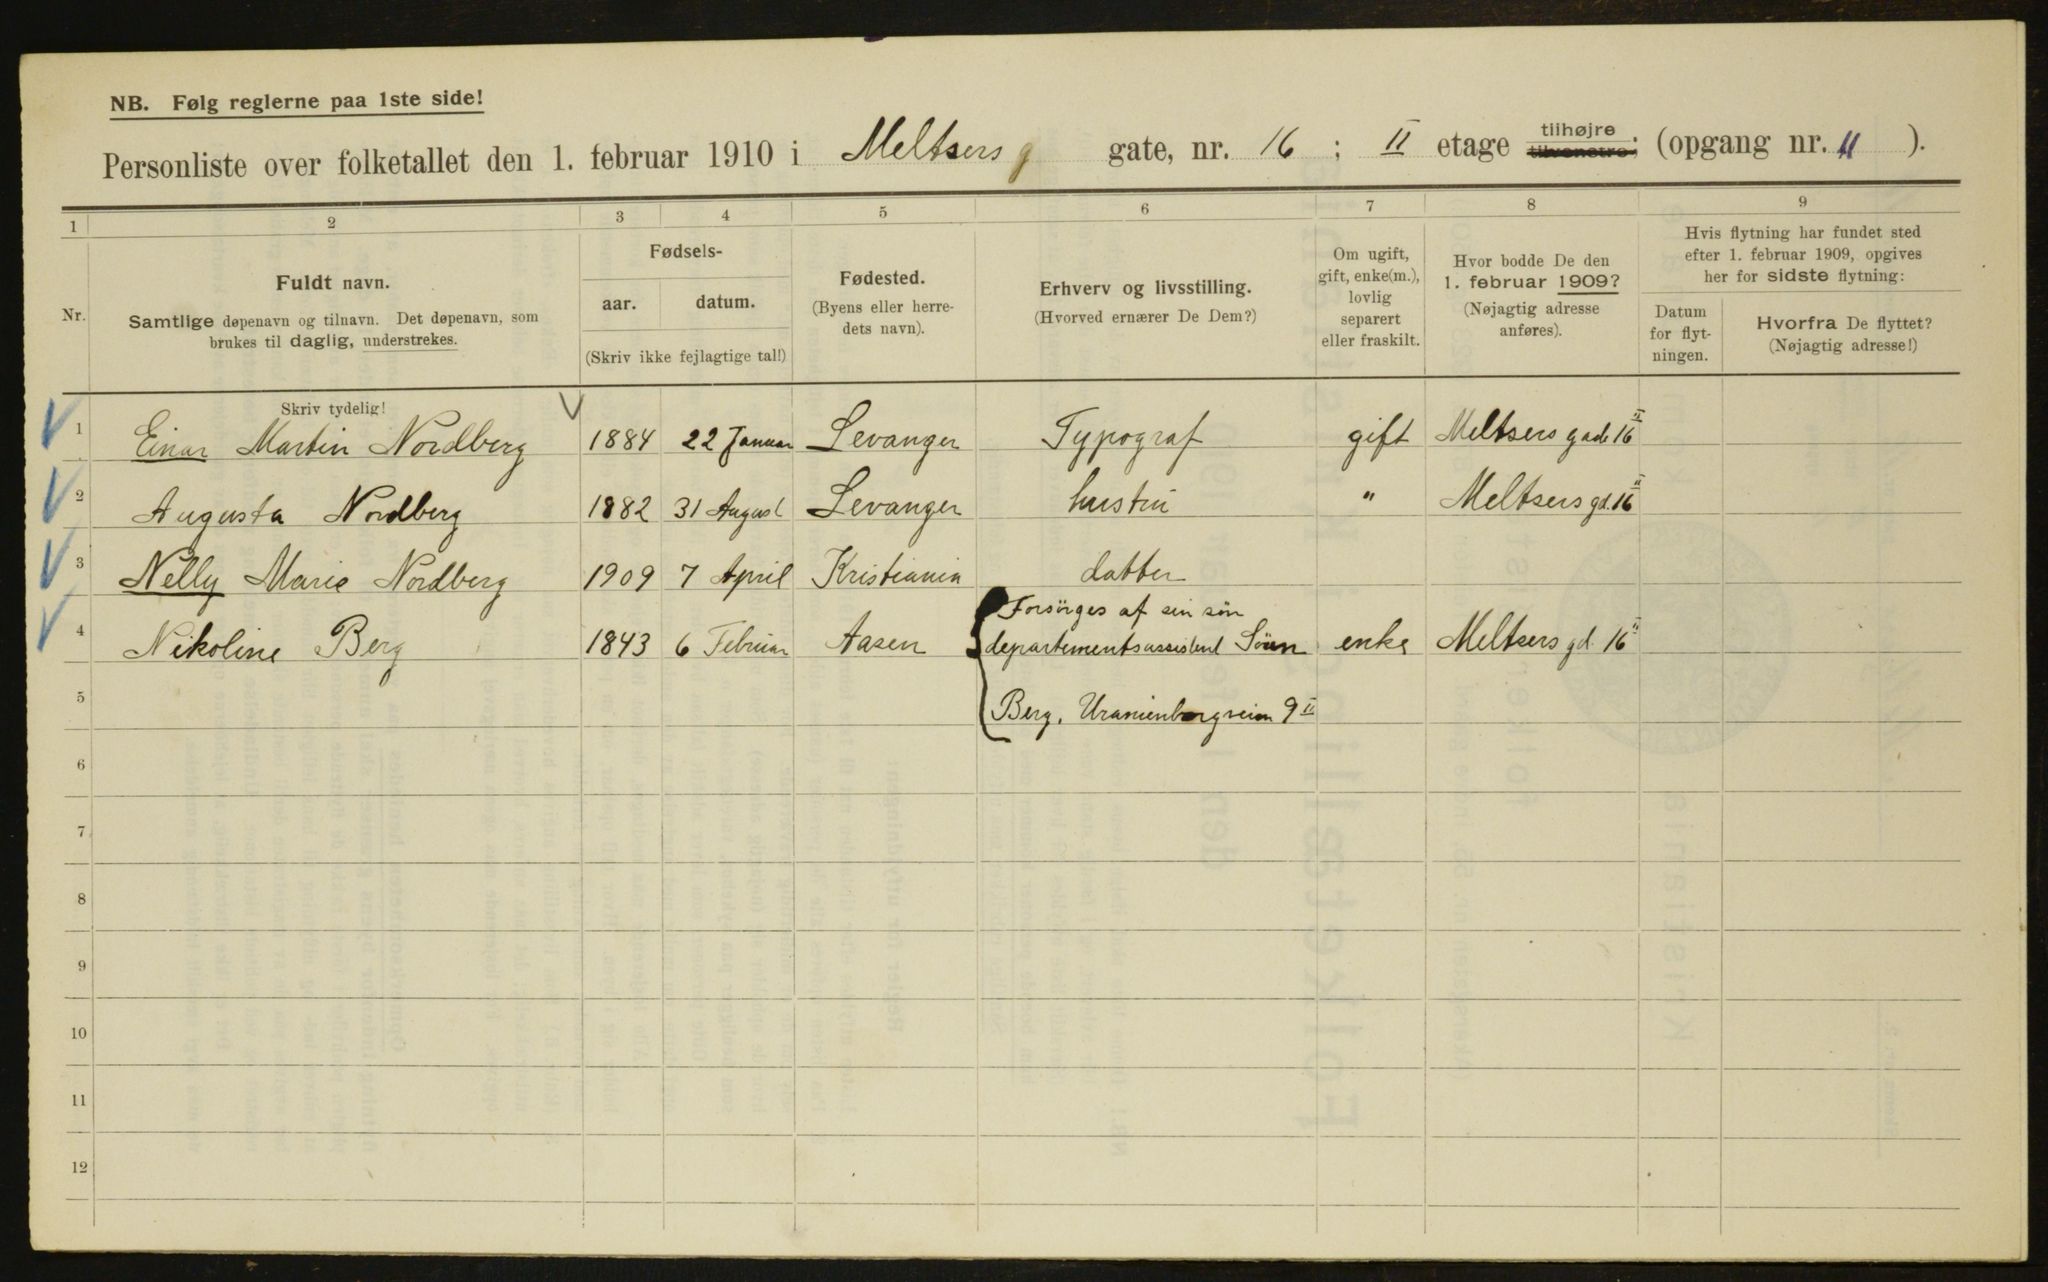 NB. Følg reglerne paa 1ste side!
Personliste over folketallet den 1. februar 1910 i Meltsers g gate, nr. 16 ; II etage tilhøjre tilvenstre ; (opgang nr. II ).
1 2 3 4 5 6 7 8 9
Nr.
Fuldt navn.
Samtlige døpenavn og tilnavn. Det døpenavn, som
brukes til daglig, understrekes.
Fødsels-
aar. datum.
(Skriv ikke fejlagtige tal!)
Fødested.
(Byens eller herre-
dets navn).
Erhverv og livsstilling.
(Hvorved ernærer De Dem?)
Om ugift,
gift, enke(m.),
lovlig
separert
eller fraskilt.
Hvor bodde De den
1. februar 1909?
(Nøjagtig adresse
anføres).
Hvis flytning har fundet sted
efter 1. februar 1909, opgives
her for sidste flytning:
Datum
for flyt-
ningen.
Hvorfra De flyttet?
(Nøjagtig adresse!)
Skriv tydelig!
1 Einar Martin Nordberg 1884 22 Januar Levanger Typograf gift Meltsers gade 16 II
2 Augusta Nordberg 1882 31 August Levanger hustru " Meltsers gd. 16 II
3 Nelly Marie Nordberg 1909 7 April Kristiania datter
Forsörges af sin sön
4 Nikoline Berg 1843 6 Februar Aasen departementsassistent Sören enke Meltsers gd. 16 II
5 Berg, Uranienborgveien 9 II
6
7
8
9
10
11
12